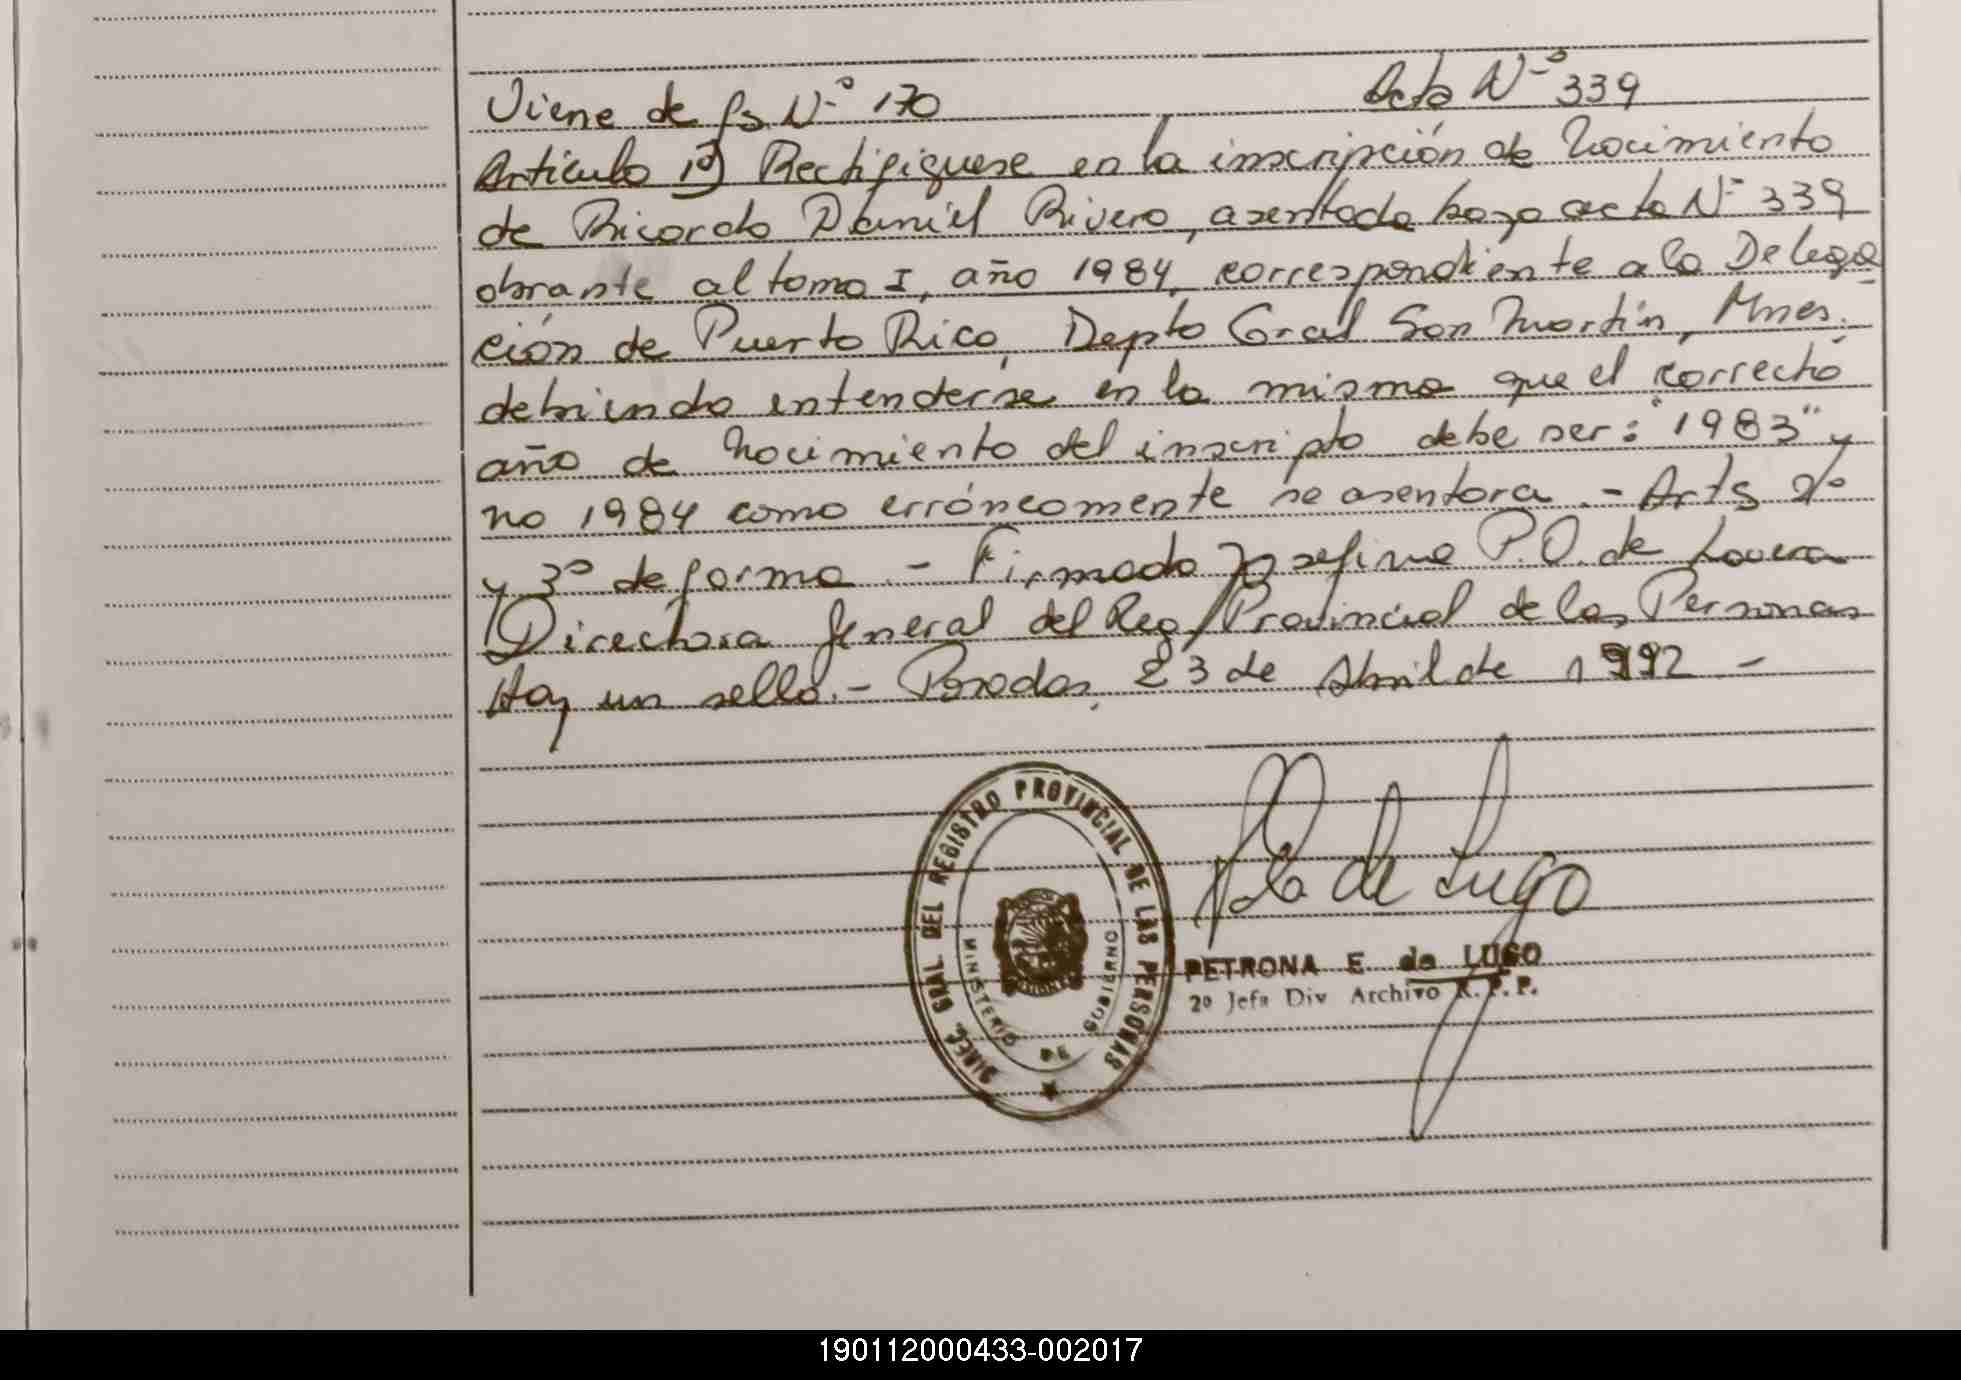 Viene de fs. Nº 170 Acta Nº 339
Artículo 1º) Rectifiquese en la inscripción de Nacimiento
de Ricardo Daniel Rivero, asentada bajo acta Nº 339
obrante al tomo I, año 1984, correspondiente a la Delega
ción de Puerto Rico, Depto Gral San Martín, Mnes.
debiendo entenderse en la misma que el correcto
año de Nacimiento del inscripto debe ser: "1983" y
no 1984 como erróneamente se asentara.- Arts 2º
y 3º de forma.- Firmado Josefina P.O. de Lovera
Directora General del Reg/Provincial de las Personas
Hay un sello.- Posadas, 23 de Abril de 1992 -
DIREC. GRAL DEL REGISTRO PROVINCIAL DE LAS PERSONAS
MINISTERIO DE GOBIERNO
de Lugo
PETRONA E. de LUGO
2º Jefa Div Archivo R.P.P.
190112000433-002017